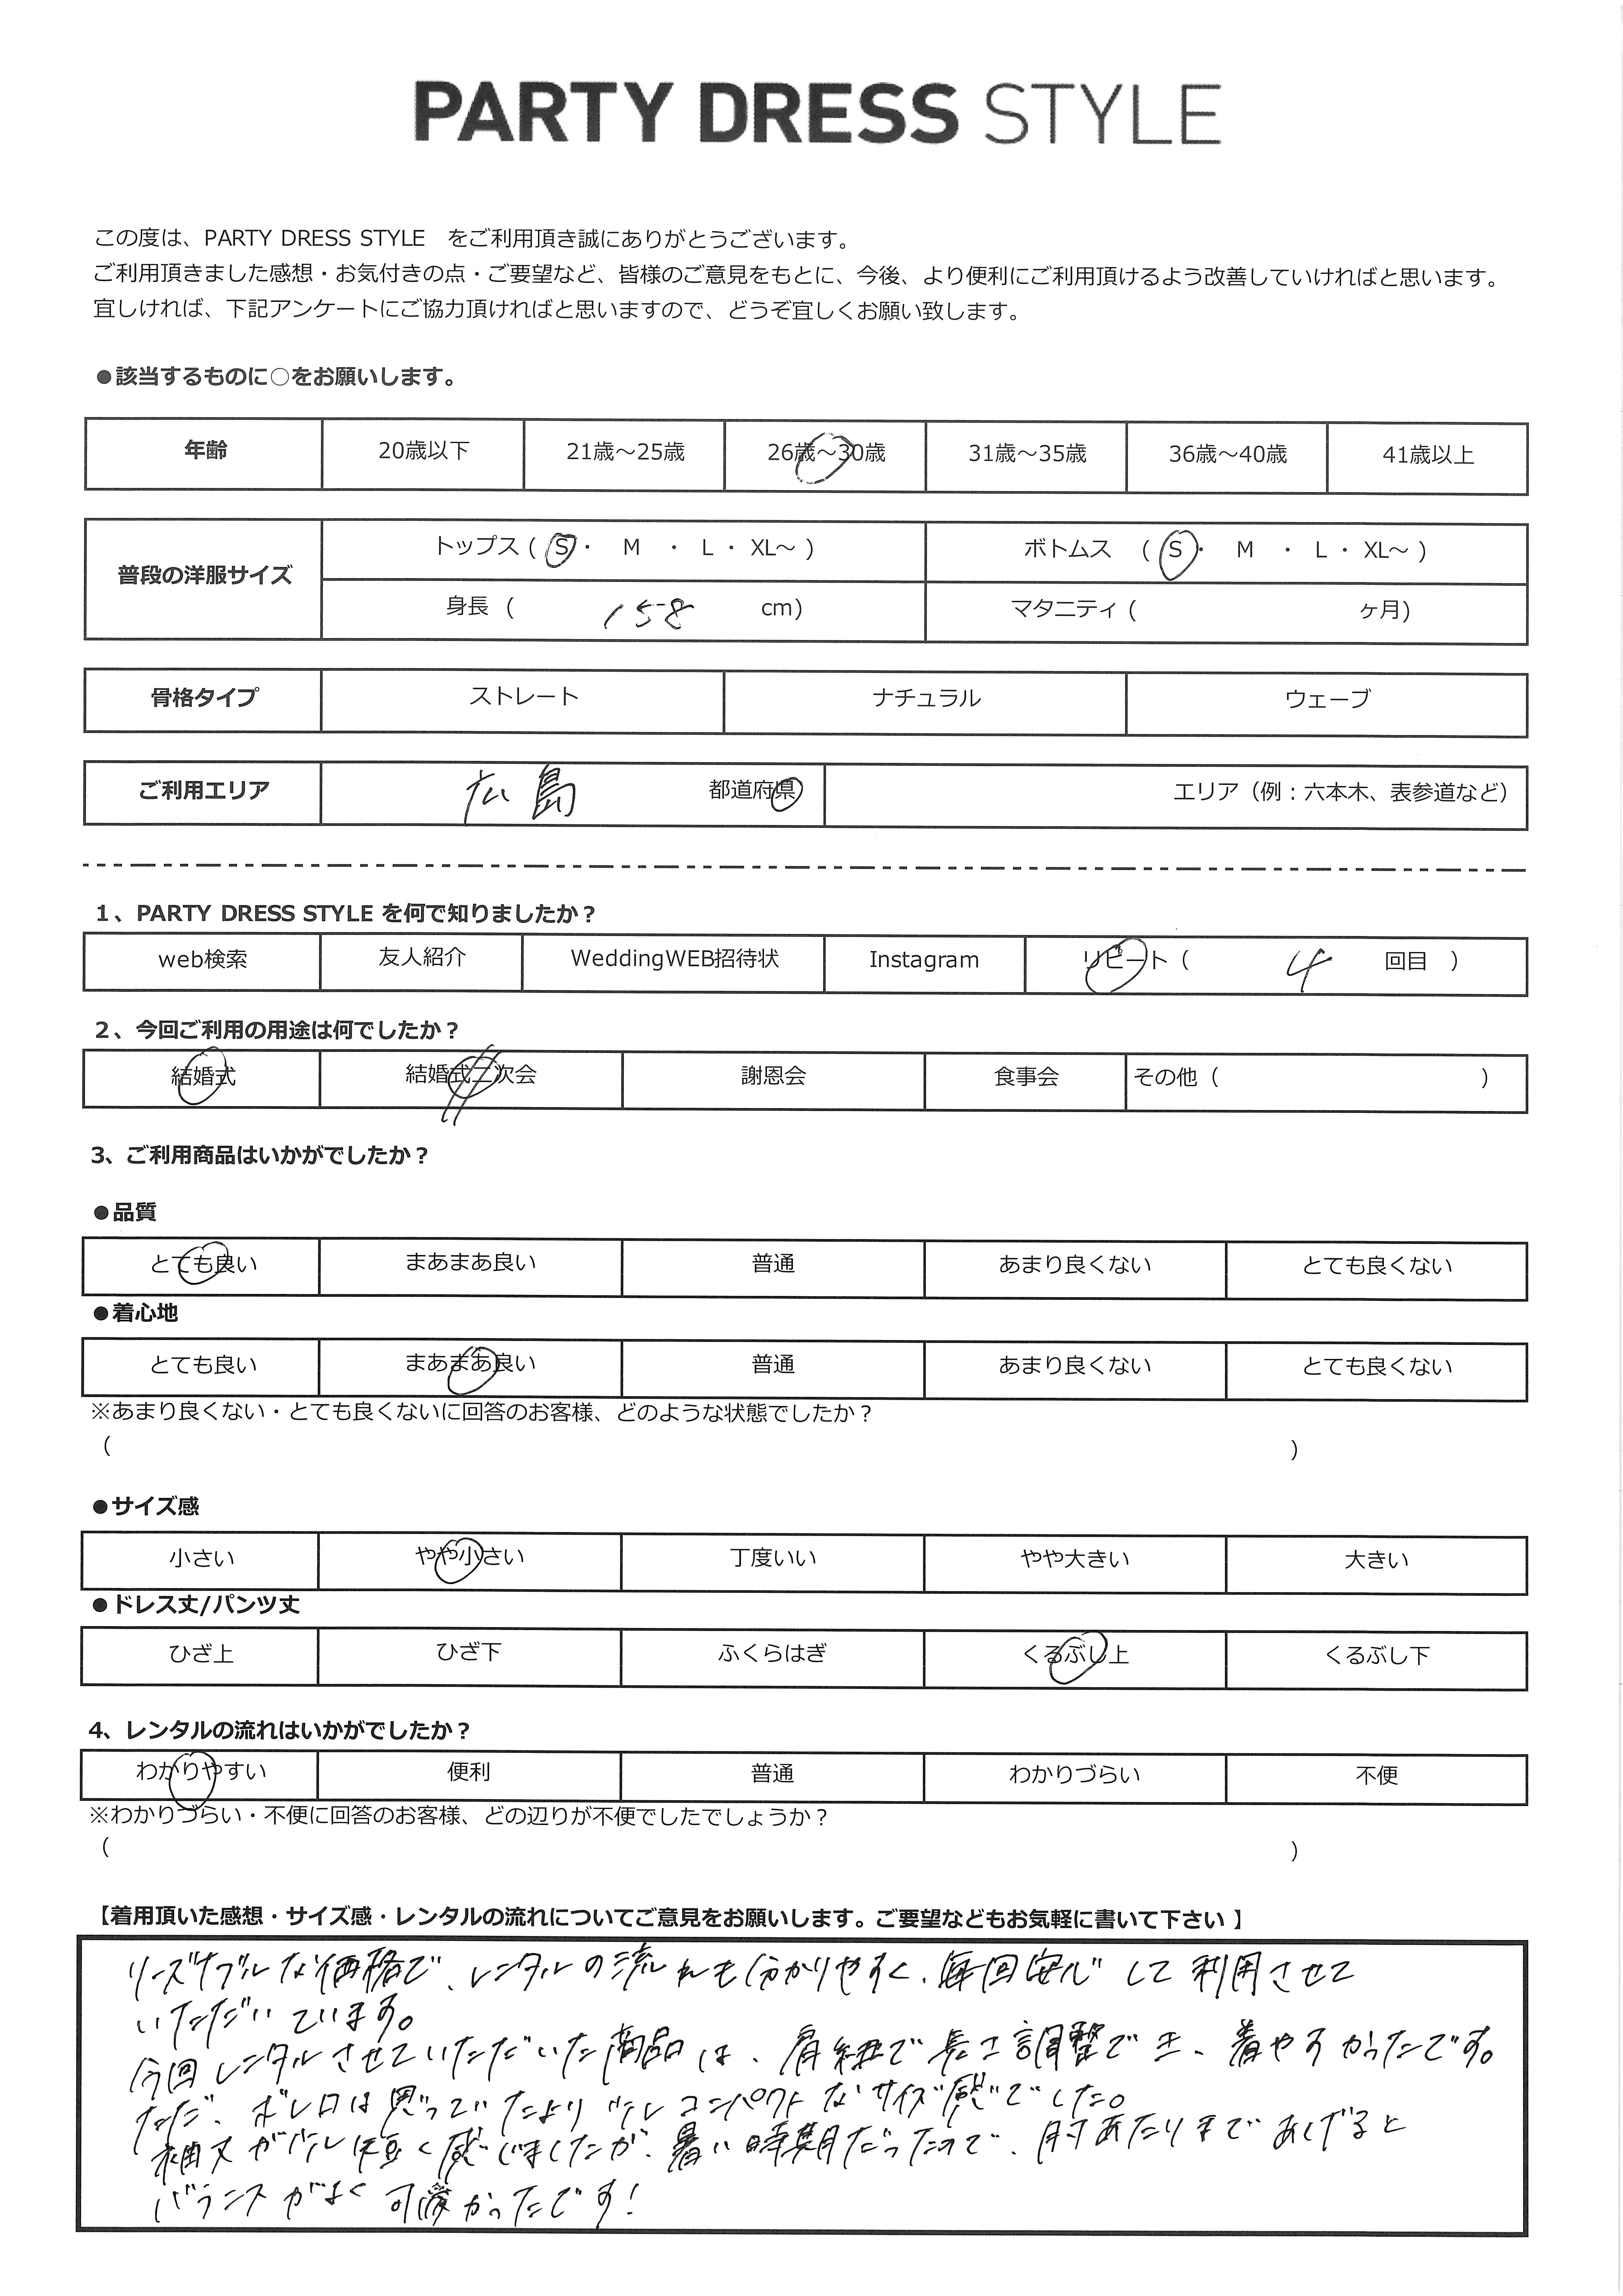 PARTY DRESS STYLE
この度は、PARTY DRESS STYLE　をご利用頂き誠にありがとうございます。
ご利用頂きました感想・お気付きの点・ご要望など、皆様のご意見をもとに、今後、より便利にご利用頂けるよう改善していければと思います。
宜しければ、下記アンケートにご協力頂ければと思いますので、どうぞ宜しくお願い致します。
●該当するものに○をお願いします。
年齢 20歳以下 21歳～25歳 26歳～30歳 31歳～35歳 36歳～40歳 41歳以上
普段の洋服サイズ トップス ( S ・ M ・ L ・ XL～ ) ボトムス ( S ・ M ・ L ・ XL～ )
身長 ( 158 cm) マタニティ ( ヶ月)
骨格タイプ ストレート ナチュラル ウェーブ
ご利用エリア 広島 都道府県 エリア（例：六本木、表参道など）
1、PARTY DRESS STYLE を何で知りましたか？
web検索 友人紹介 WeddingWEB招待状 Instagram リピート（ 4 回目 ）
2、今回ご利用の用途は何でしたか？
結婚式 結婚式二次会 謝恩会 食事会 その他（ ）
3、ご利用商品はいかがでしたか？
●品質
とても良い まあまあ良い 普通 あまり良くない とても良くない
●着心地
とても良い まあまあ良い 普通 あまり良くない とても良くない
※あまり良くない・とても良くないに回答のお客様、どのような状態でしたか？
（ ）
●サイズ感
小さい やや小さい 丁度いい やや大きい 大きい
●ドレス丈/パンツ丈
ひざ上 ひざ下 ふくらはぎ くるぶし上 くるぶし下
4、レンタルの流れはいかがでしたか？
わかりやすい 便利 普通 わかりづらい 不便
※わかりづらい・不便に回答のお客様、どの辺りが不便でしたでしょうか？
（ ）
【着用頂いた感想・サイズ感・レンタルの流れについてご意見をお願いします。ご要望などもお気軽に書いて下さい 】
リーズナブルな価格で、レンタルの流れも分かりやすく、毎回安心して利用させて
いただいています。
今回レンタルさせていただいた商品は、肩紐で長さ調整でき、着やすかったです。
ただ、ボレロは思っていたより少しコンパクトなサイズ感でした。
袖丈が少し短く感じましたが、暑い時期だったので、肘あたりまであげると
バランスがよく可愛かったです！